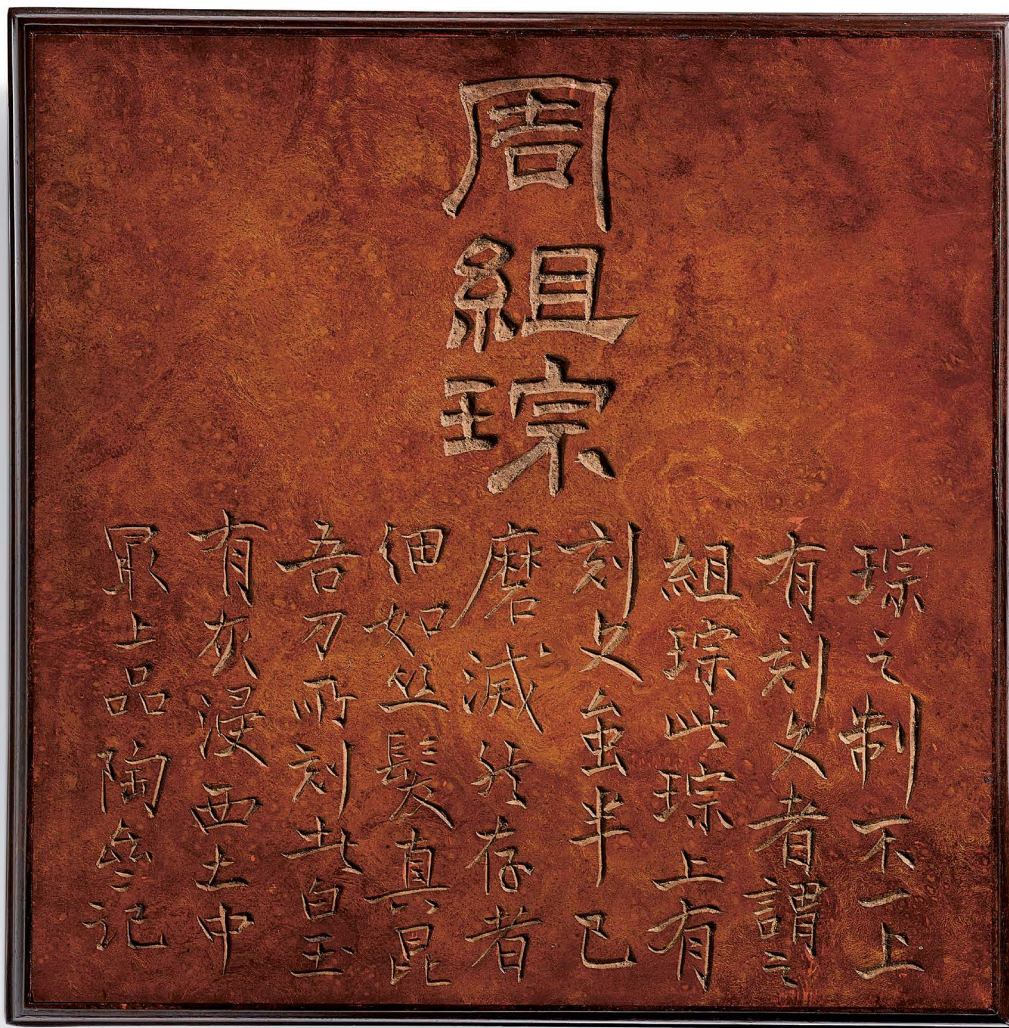 周組琮
琮之制不一上
有刻文者謂之
組琮此琮上有
刻文虽半已
磨滅然存者
細如丝髮真昆
吾刀所刻此白玉
有灰浸西土中
最上品陶記